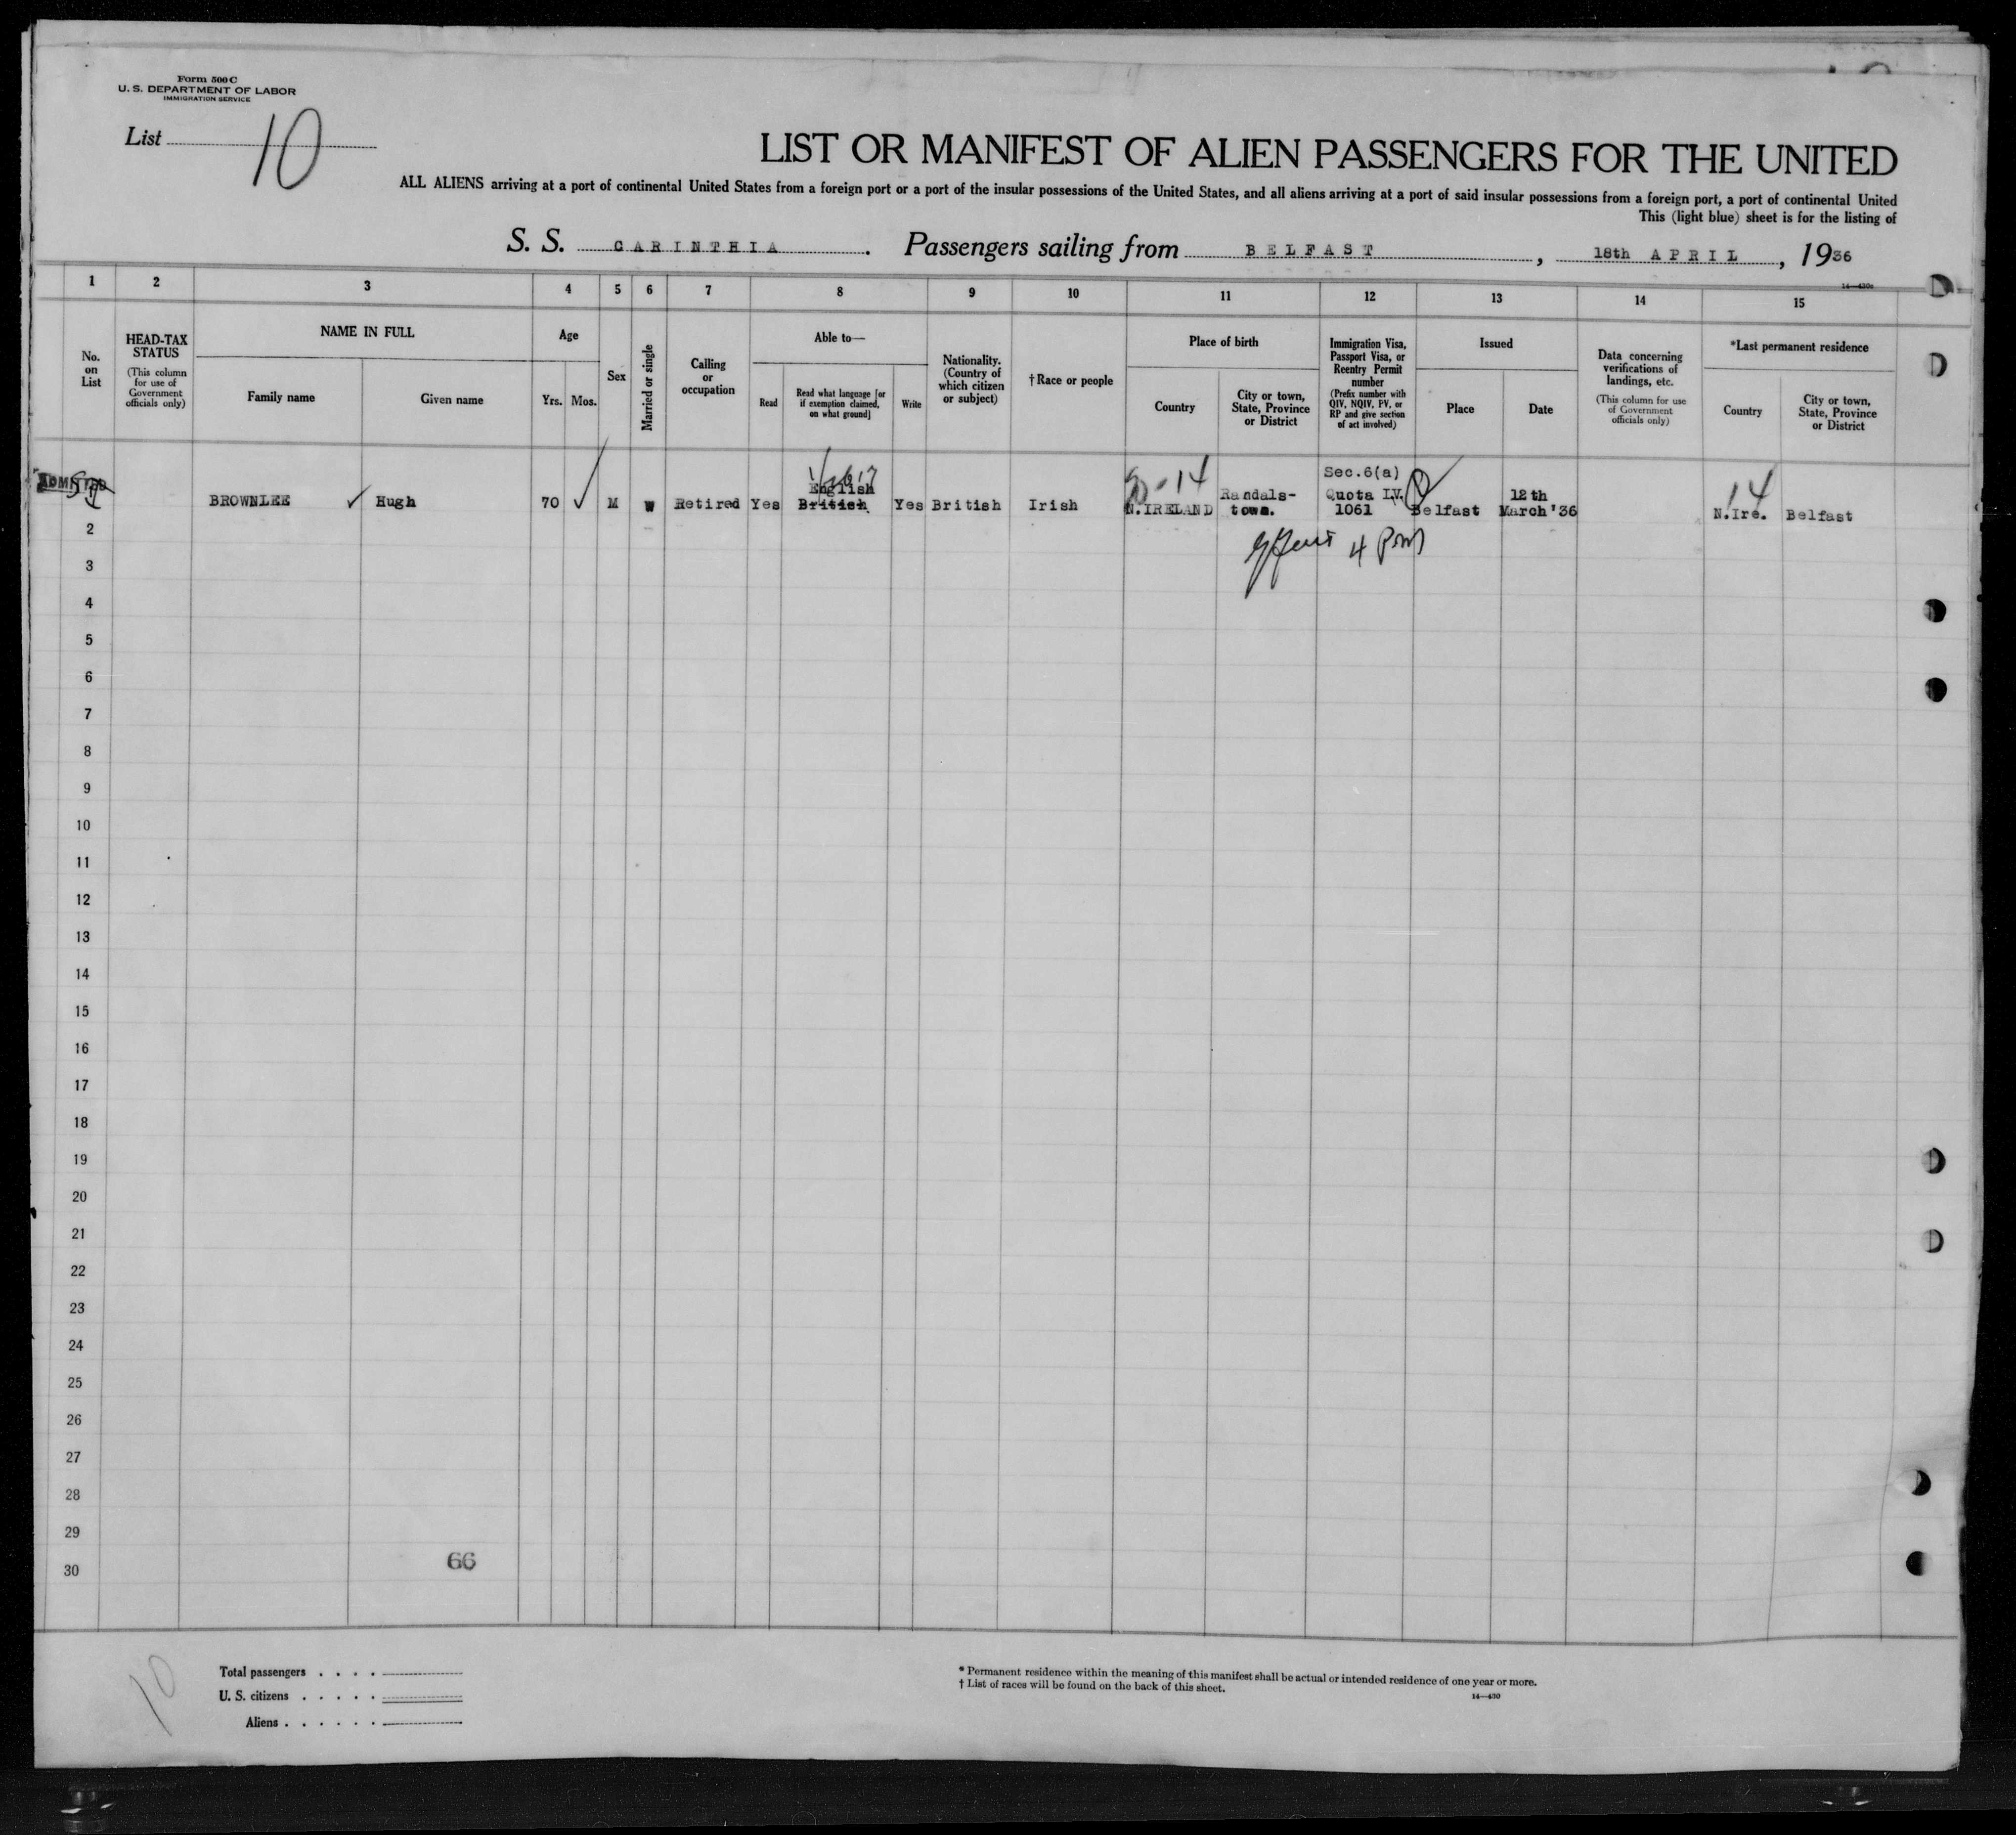 Form 500 C
U. S. DEPARTMENT OF LABOR
IMMIGRATION SERVICE
List 10
LIST OR MANIFEST OF ALIEN PASSENGERS FOR THE UNITED
ALL ALIENS arriving at a port of continental United States from a foreign port or a port of the insular possessions of the United States, and all aliens arriving at a port of said insular possessions from a foreign port, a port of continental United
This (light blue) sheet is for the listing of
S. S. CARINTHIA. Passengers sailing from BELFAST, 18th APRIL, 1936
1 2 3 4 5 6 7 8 9 10 11 12 13 14 15
No. on List
HEAD-TAX STATUS
(This column for use of Government officials only)
NAME IN FULL
Family name
Given name
Age
Yrs. Mos.
Sex
Married or single
Calling or occupation
Able to—
Read
Read what language [or if exemption claimed, on what ground]
Write
Nationality. (Country of which citizen or subject)
† Race or people
Place of birth
Country
City or town, State, Province or District
Immigration Visa, Passport Visa, or Reentry Permit number
(Prefix number with QIV, NQIV, PV, or RP and give section of act involved)
Issued
Place
Date
Data concerning verifications of landings, etc.
(This column for use of Government officials only)
*Last permanent residence
Country
City or town, State, Province or District
ADMITTED
BROWNLEE ✓ Hugh 70 ✓ M W Retired Yes English British Yes British Irish 14 N.IRELAND Randals-town. Sec.6(a) Quota I.V. 1061 Belfast 12th March'36 14 N.Ire. Belfast
2
3
4
5
6
7
8
9
10
11
12
13
14
15
16
17
18
19
20
21
22
23
24
25
26
27
28
29
30
66
10
Total passengers . . . .
U. S. citizens . . . . .
Aliens . . . . . .
* Permanent residence within the meaning of this manifest shall be actual or intended residence of one year or more.
† List of races will be found on the back of this sheet.
14—430